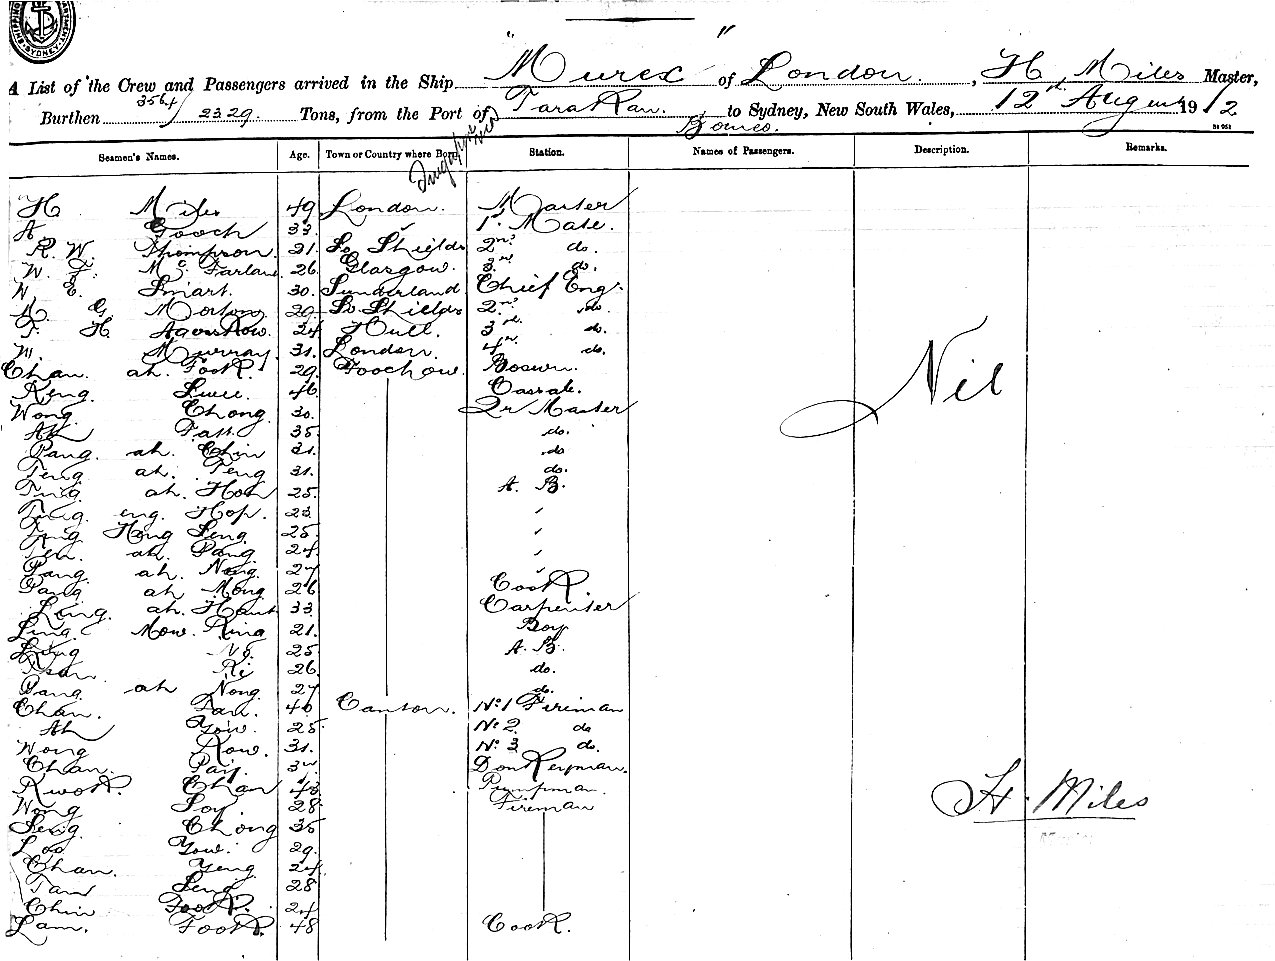 SHIPPING DEPARTMENT SYDNEY
A List of the Crew and Passengers arrived in the Ship "Murex" of London, H. Miles Master,
Burthen 3564/2329 Tons, from the Port of Tarakan Borneo to Sydney, New South Wales, 12th August 1912
Seamen's Names. Age. Town or Country where Born Station. Names of Passengers. Description. Remarks.
H. Miles 49 London. Master
A. Gooch 33 " 1st Mate.
R. W. Thompson. 21. So Shields 2nd do.
W. F. McFarlane 26. Glasgow. 3rd do.
W. E. Smart. 30. Sunderland Chief Engr.
A. G. Morton 29. So Shields 2nd do.
F. H. 24 Hull. 3rd do.
M. Murray. 31. London. 4th do.
Chan. ah. Fook. 29. Foochow. Boswn.
Keng. 46. Cassab.
Wong Chong. 30. Qr Master
Ah 35. do.
Pang. ah. Chin 31. do
Teng ah. Teng 31. do.
Ting ah. Hoh 25. A. B.
Ting. eng. Hop. 23 "
Ting Hong Seng 25. "
ah. Pang 24 "
Pang ah. Nong. 27 "
Pang ah Mong 26 Cook.
Ling. ah. 33. Carpenter
Ling. Mow. King 21. Boy
Ling 25 A. B.
Ki 26. do.
Pang ah Nong. 27 do.
Chan. Fan. 46 Canton. No 1 Fireman
Ah Yow. 25 No 2 do
Wong Kow. 31. No 3 do.
Chan. Donkeyman.
Kwok. Chan Pumpman.
Wong Soy. 28. Fireman
Seng Chong 35
Loo Yow. 29.
Chan. Yeng 24.
Seng 28
Chin Fook. 24
Lam. Fook. 48 Cook.
Nil
H. Miles